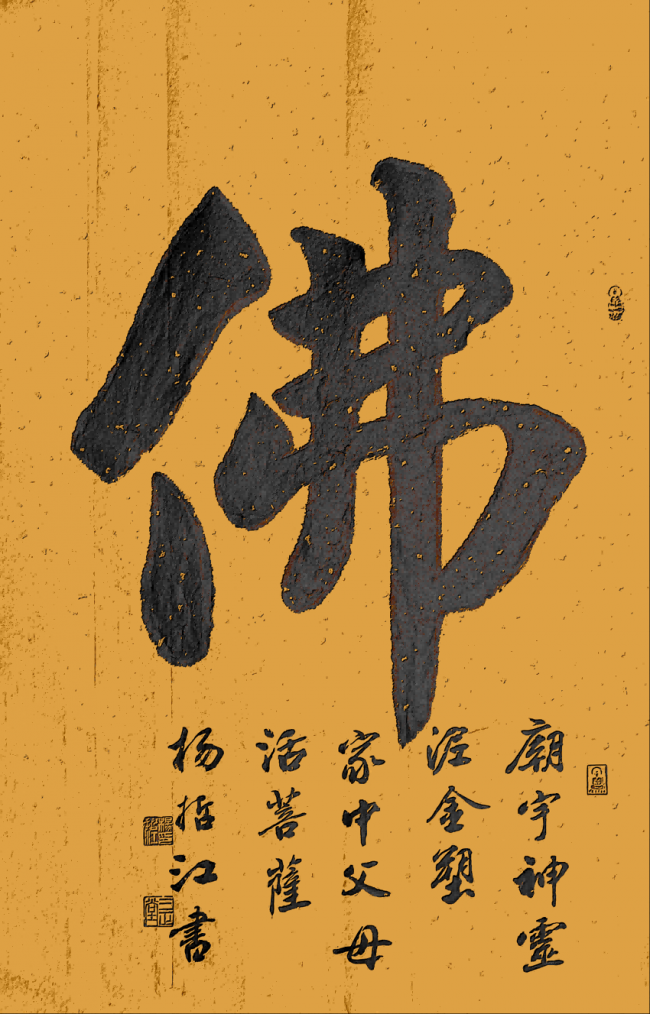 佛
廟宇神靈
泥金塑
家中父母
活菩薩
杨哲江書